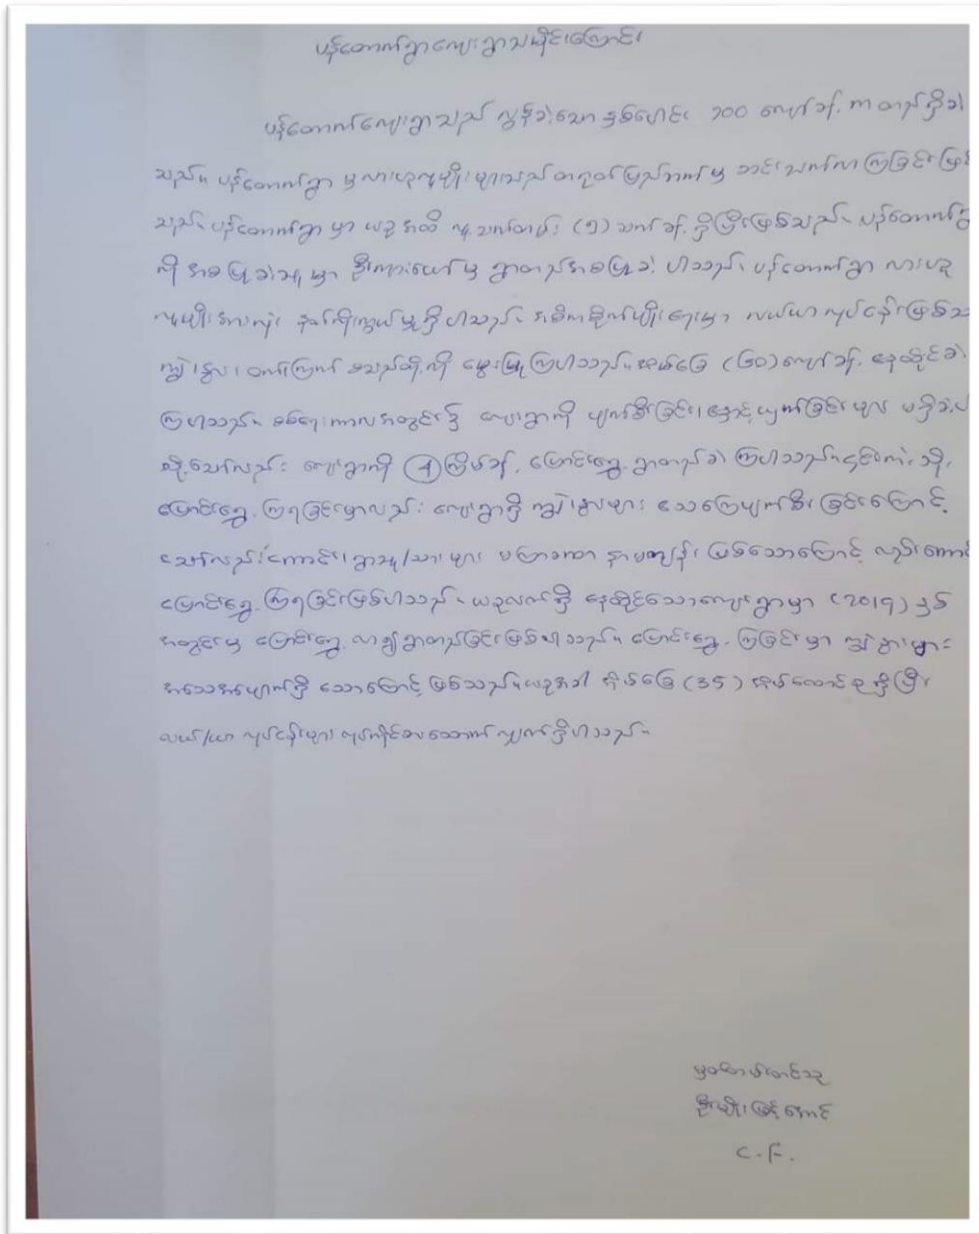 ပန်တောက်ရွာကျေးရွာသမိုင်းကြောင်း
ပန်တောက်ကျေးရွာသည် လွန်ခဲ့သော နှစ်ပေါင်း ၁၀၀ ကျော်ခန့် က တည်ရှိခဲ့
သည်။ ပန်တောက်ရွာ မှ လားဟူလူမျိုး များသည် တရုတ်ပြည်ဘက်မှ ဆင်းသက်လာကြခြင်း ဖြစ်
သည်။ ပန်တောက်ရွာ မှာ ယခု အထိ လူ့သက်တမ်း (၅) သက်ခန့် ရှိပြီးဖြစ်သည်။ ပန်တောက်ရွာ
ကို အစပြုခဲ့သူ မှာ ဦးကျားပေါ် မှ ရွာတည်အစပြုခဲ့ ပါသည်။ ပန်တောက်ရွာ လားဟူ
လူမျိုး အားလုံး နတ်ကိုးကွယ်မှုရှိပါသည်။ အဓိကစိုက်ပျိုးရေးမှာ လယ်ယာ လုပ်ငန်းဖြစ်သ
ကျွဲ၊ နွား၊ ဝက်၊ကြက် စသည်တို့ကို မွေးမြူကြပါသည်။ အိမ်ခြေ (၆၀) ကျော်ခန့် နေထိုင်ခဲ့
ကြပါသည်။ စစ်ရေးကာလအတွင်း၌ ကျေးရွာကို ဖျက်ဆီးခြင်း၊ နှောင့်ယှက်ခြင်းများ မရှိခဲ့ပ
သို့သော်လည်း ကျေးရွာကို (၂) ကြိမ်ခန့် ပြောင်းရွှေ့ ရွာတည်ခဲ့ ကြပါသည်။ ၎င်းကဲ့သို့
ပြောင်းရွှေ့ ကြရခြင်းမှာလည်း ကျေးရွာရှိ ကျွဲ၊နွားများ သေကြေပျက်စီးခြင်းကြောင့်
သော်လည်းကောင်း၊ ရွာသူ/သား များ မကြာခဏ နာမကျန်း ဖြစ်သောကြောင့် လည်းကောင်
ပြောင်းရွှေ့ ကြရခြင်းဖြစ်ပါသည်။ ယခုလက်ရှိ နေထိုင်သောကျေးရွာမှာ (၂၀၁၅) ခုနှစ်
အတွင်းမှ ပြောင်းရွှေ့ လာ၍ ရွာတည်ခြင်းဖြစ်ပါသည်။ ပြောင်းရွှေ့ ကြခြင်း မှာ ကျွဲ နွား များ
အသေအပျောက်ရှိ သောကြောင့် ဖြစ်သည်။ ယခုအခါ အိမ်ခြေ (၃၅) အိမ်ထောင်စု ရှိပြီး
လယ်/ယာ လုပ်ငန်းများ လုပ်ကိုင်စားသောက် လျှက်ရှိပါသည်။
မှတ်တမ်းတင်သူ
ဦးမျိုးမြင့်အောင်
C.F.